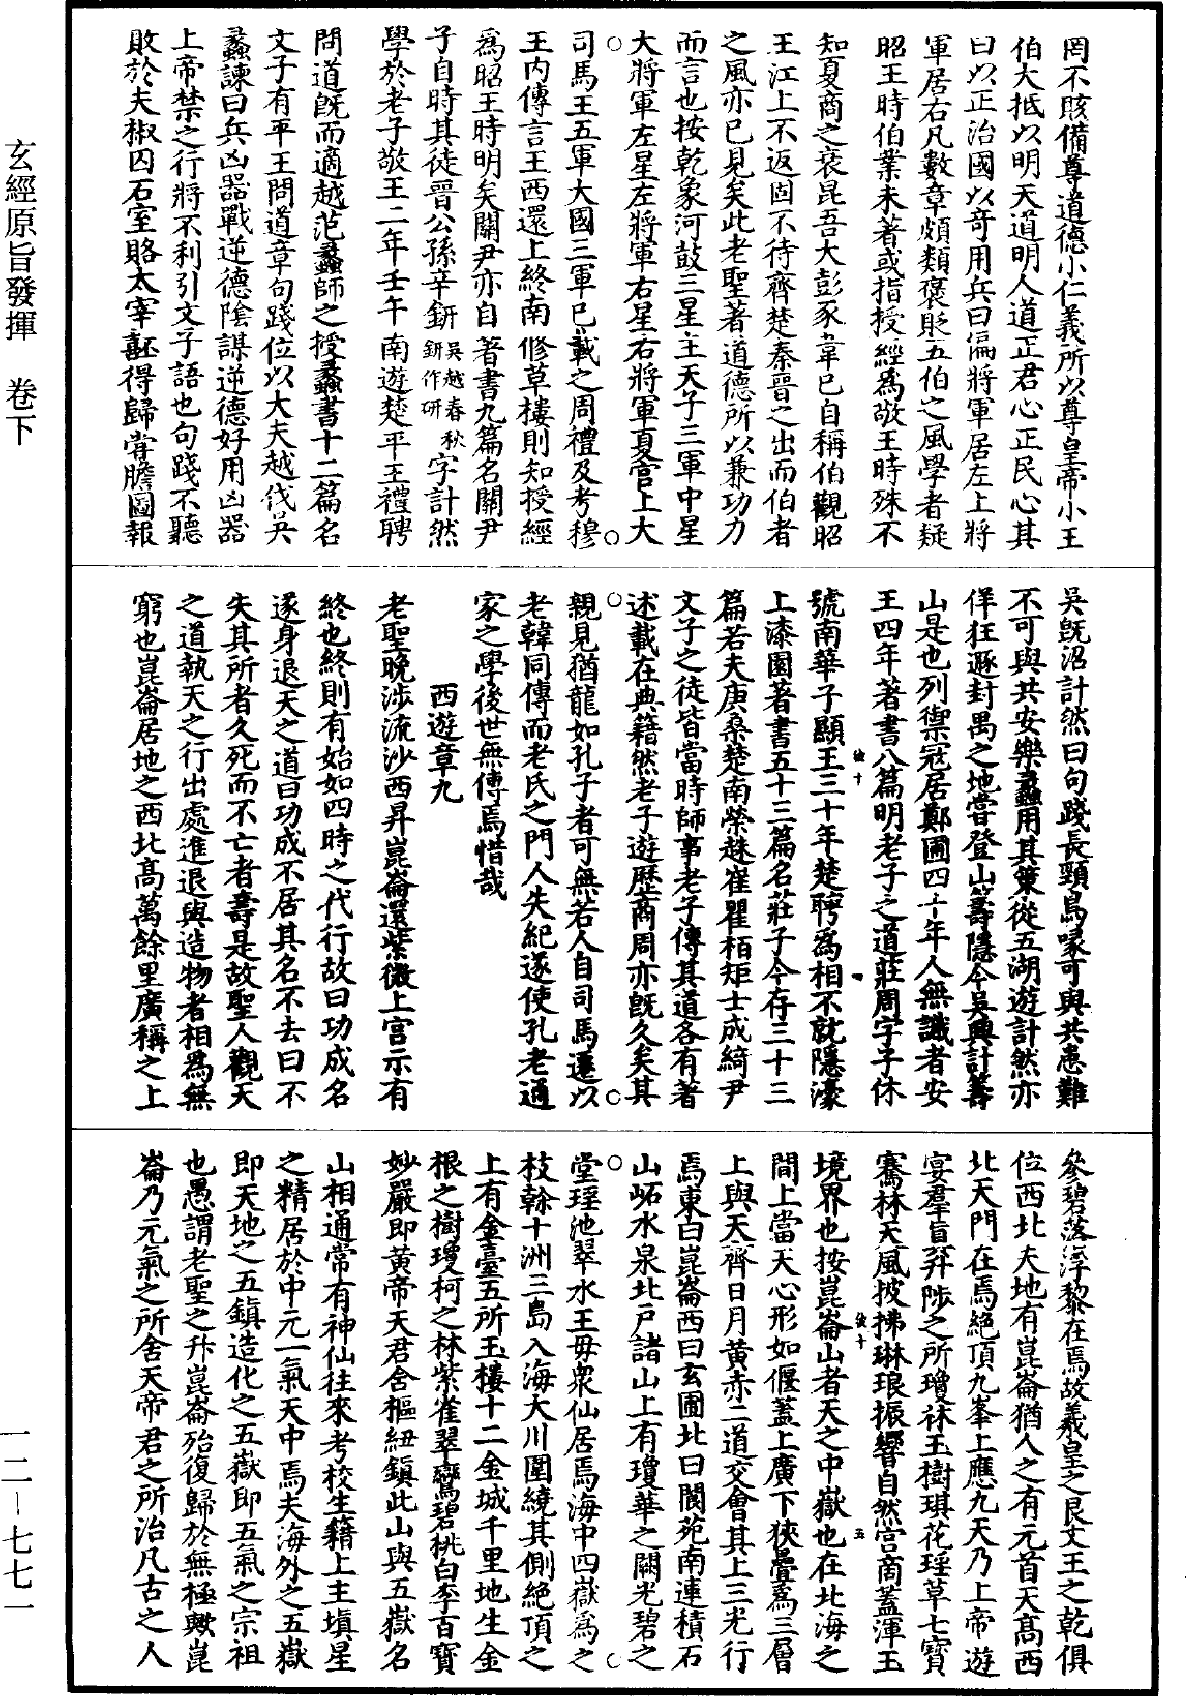 罔不賅備尊道德小仁義所以尊皇帝小王
伯大抵以明天道明人道正君心正民心其
曰以正治國以奇用兵曰偏將軍居左上將
軍居右凡數章頗類褒貶五伯之風學者疑
昭王時伯業未著或指授經為敬王時殊不
知夏商之衰昆吾大彭豕韋已自稱伯觀昭
王江上不返固不待齊楚秦晉之出而伯者
之風亦已見矣此老聖著道德所以兼功力
而言也按乾象河鼓三星主天子三軍中星
大將軍左星左將軍右星右將軍夏官上大
司馬王五軍大國三軍已載之周禮及考穆
王內傳言王西還上終南修草樓則知授經
為昭王時明矣關尹亦自著書九篇名關尹
子自時其徒晉公孫辛鈃吳越春秋鈃作研字計然
學於老子敬王二年壬午南遊楚平王禮聘
問道既而適越范蠡師之授蠡書十二篇名
文子有平王問道章句踐位以大夫越伐吳
蠡諫曰兵凶器戰逆德陰謀逆德好用凶器
上帝禁之行將不利引文子語也句踐不聽
敗於夫椒囚石室賂太宰嚭得歸嘗膽圖報
吳既沼計然曰句踐長頸鳥喙可與共患難
不可與共安樂蠡用其策從五湖遊計然亦
佯狂遯封禺之地嘗登山籌隱今吳興計籌
山是也列禦冠居鄭圃四十年人無識者安
王四年著書八篇明老子之道莊周字子休
號南華子顯王三十年楚聘為相不就隱濠
上漆園著書五十三篇名莊子今存三十三
篇若夫庚桑楚南榮趎崔瞿栢矩士成綺尹
文子之徒皆當時師事老子傳其道各有著
述載在典籍然老子遊歷商周亦既久矣其
親見猶龍如孔子者可無若人自司馬遷以
老韓同傳而老氏之門人失紀遂使孔老通
家之學後世無傳焉惜哉
西遊章九
老聖晚涉流沙西昇崑崙還紫微上宮示有
終也終則有始如四時之代行故曰功成名
遂身退天之道曰功成不居其名不去曰不
失其所者久死而不亡者壽是故聖人觀天
之道執天之行出處進退與造物者相為無
窮也崑崙居地之西北高萬餘里廣稱之上
參碧落浮黎在焉故羲皇之艮文王之乾俱
位西北夫地有崑崙猶人之有元首天高西
北天門在焉絕頂九峯上應九天乃上帝遊
宴羣旨昇陟之所瓊林玉樹琪花瑤草七寶
騫林天風披拂琳琅振響自然宮商蓋渾玉
境界也按崑崙山者天之中嶽也在北海之
間上當天心形如偃蓋上廣下狹疊為三層
上與天齊日月黃赤二道交會其上三光行
焉東曰崑崙西曰玄圃北曰閬苑南連積石
山峁水泉北戶諸山上有瓊華之闕光碧之
堂瑤池翠水王毋衆仙居焉海中四嶽為之
枝榦十洲三島入海大川圍繞其側絕頂之
上有金臺五所玉樓十二金城千里地生金
根之樹瓊柯之林紫雀翠鸞碧桃白李百寶
妙嚴即黃帝天君舍樞紐鎮此山與五嶽名
山相通常有神仙往來考校生籍上主塡星
之精居於中元一氣天中焉夫海外之五嶽
即天地之五鎮造化之五嶽即五氣之宗祖
也愚謂老聖之升崑崙殆復歸於無極歟崑
崙乃元氣之所舍天帝君之所治凡古之人
玄經原旨發揮 卷下
一二—七七一